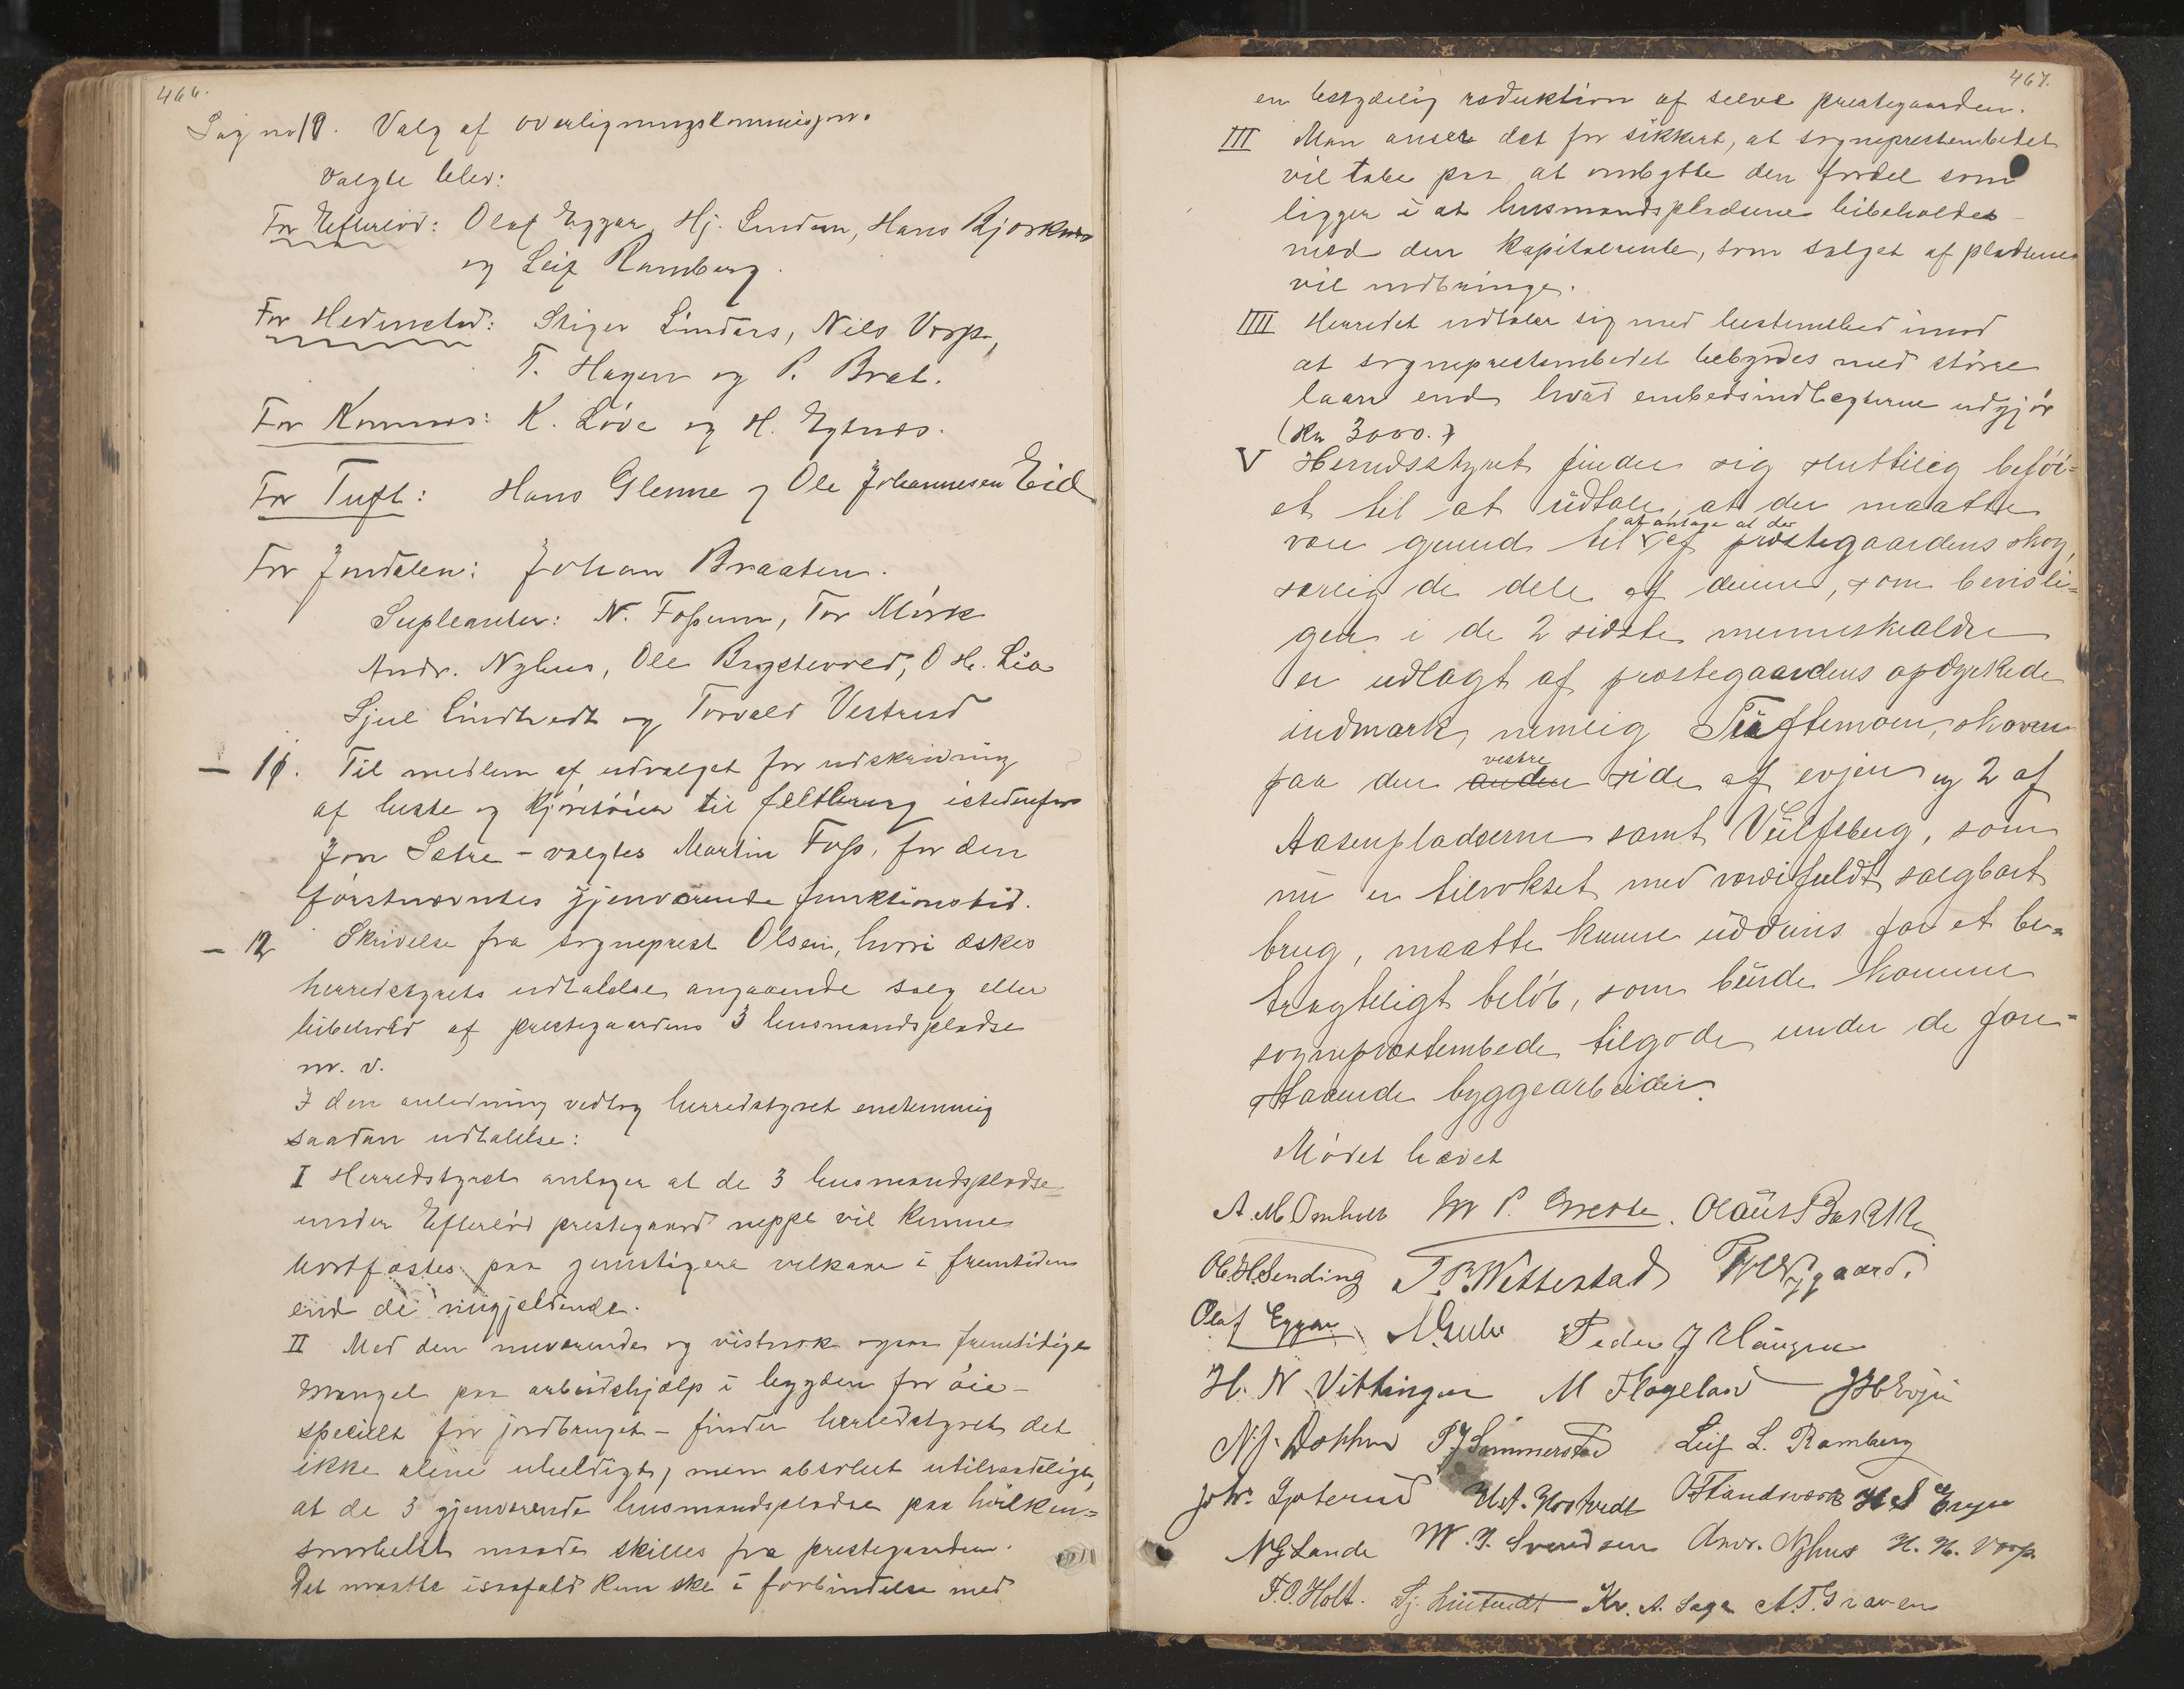 466.
Sag no 10. Valg af overligningskommisjon.
Valgte blev:
For Efterløt: Olaf Eggar, Hj. Lindem, Hans Bjørknes
og Leif Ramberg.
For Hedenstad: Skiger Lindaas, Nils Vorp,
T. Hagen og P. Bræt.
For Komnes: K. Løve og H. Eknes.
For Tuft: Hans Glenne og Ole Johannesen Eid
For Jondalen: Johan Braaten.
Supleanter: N. Fossum, Tor Mørk
Andr. Nyhus, Ole Bagstevold, O. H. Lia
Sjul Lindtvedt og Torvald Vestrud
— 11. Til medlem af udvalget for udskrivning
af heste og kjøretøier til feltbrug istedenfor
Jon Sætre – valgtes Martin Foss, for den
førstnævntes gjenværende funktionstid.
— 12 Skrivelse fra sogneprest Olsen, hvori æskes
herredstyrets udtalelse angaaende salg eller
bibehold af prestegaardens 3 husmandspladse
m. v.
I den anledning vedtog herredstyret enstemmig
saadan udtalelse:
I Herredstyret antager at de 3 husmandspladse
under Efterløt prestegaard neppe vil kunne
bortfæstes paa gunstigere vilkaar i fremtiden
end de nugjeldende.
II Med den nuværende og vistnok ogsaa fremtidige
mangel paa arbeidshjælp i bygden for øie –
specielt for jordbruget – finder herredstyret det
ikke alene uheldigt, men absolut utilraadeligt,
at de 3 gjenværende husmandspladse paa hvilken=
somhelst maade skilles fra prestegaarden.
Det maatte isaafald kun ske i forbindelse med
467.
en betydelig reduktion af selve prestegaarden.
III Man anser det for sikkert, at sogneprestembedet
vil tabe paa at ombytte den fordel som
ligger i at husmandspladsene bibeholdes
med den kapitalrente, som salget af pladsene
vil indbringe.
IIII Herredet udtaler sig med bestemthed imod
at sogneprestembedet bebyrdes med større
laan end hvad embedsindtægterne udgjør
(Kr 3000.)
V Herredsstyret finder sig sluttelig beføi=
et til at udtale, at der maatte
være grund til at antage at der af præstegaardens skog,
særlig de dele af denne, som bevisli=
gen i de 2 sidste menneskealdre
er udlagt af præstegaardens opdyrkede
indmark, nemlig Tuftemoen, skoven
paa den anden vestre side af evjen og 2 af
Aasenpladserne samt Vulfsberg, som
nu er tilvokset med værdifuldt salgbart
brug, maatte kunne uddrives for et be=
tragteligt beløb, som burde komme
sognepræstembede tilgode under de fore=
staaende byggearbeider.
Mødet hævet
A. M. Omholt
Ole H. Sending T. P. Wettestad
Olaf Eggar Peder J Haugen
H. N. Vittingen M Flageland J H Evju
N. J. Dokken P. J. Simmerstad Leif L. Ramberg
H. A. Hostvedt
N G Lande M. J. Svendsen Andr. Nyhus N. N. Vorp.
F. O. Holt. Sj. Lintvedt Kr. A. Saga A. T. Graven